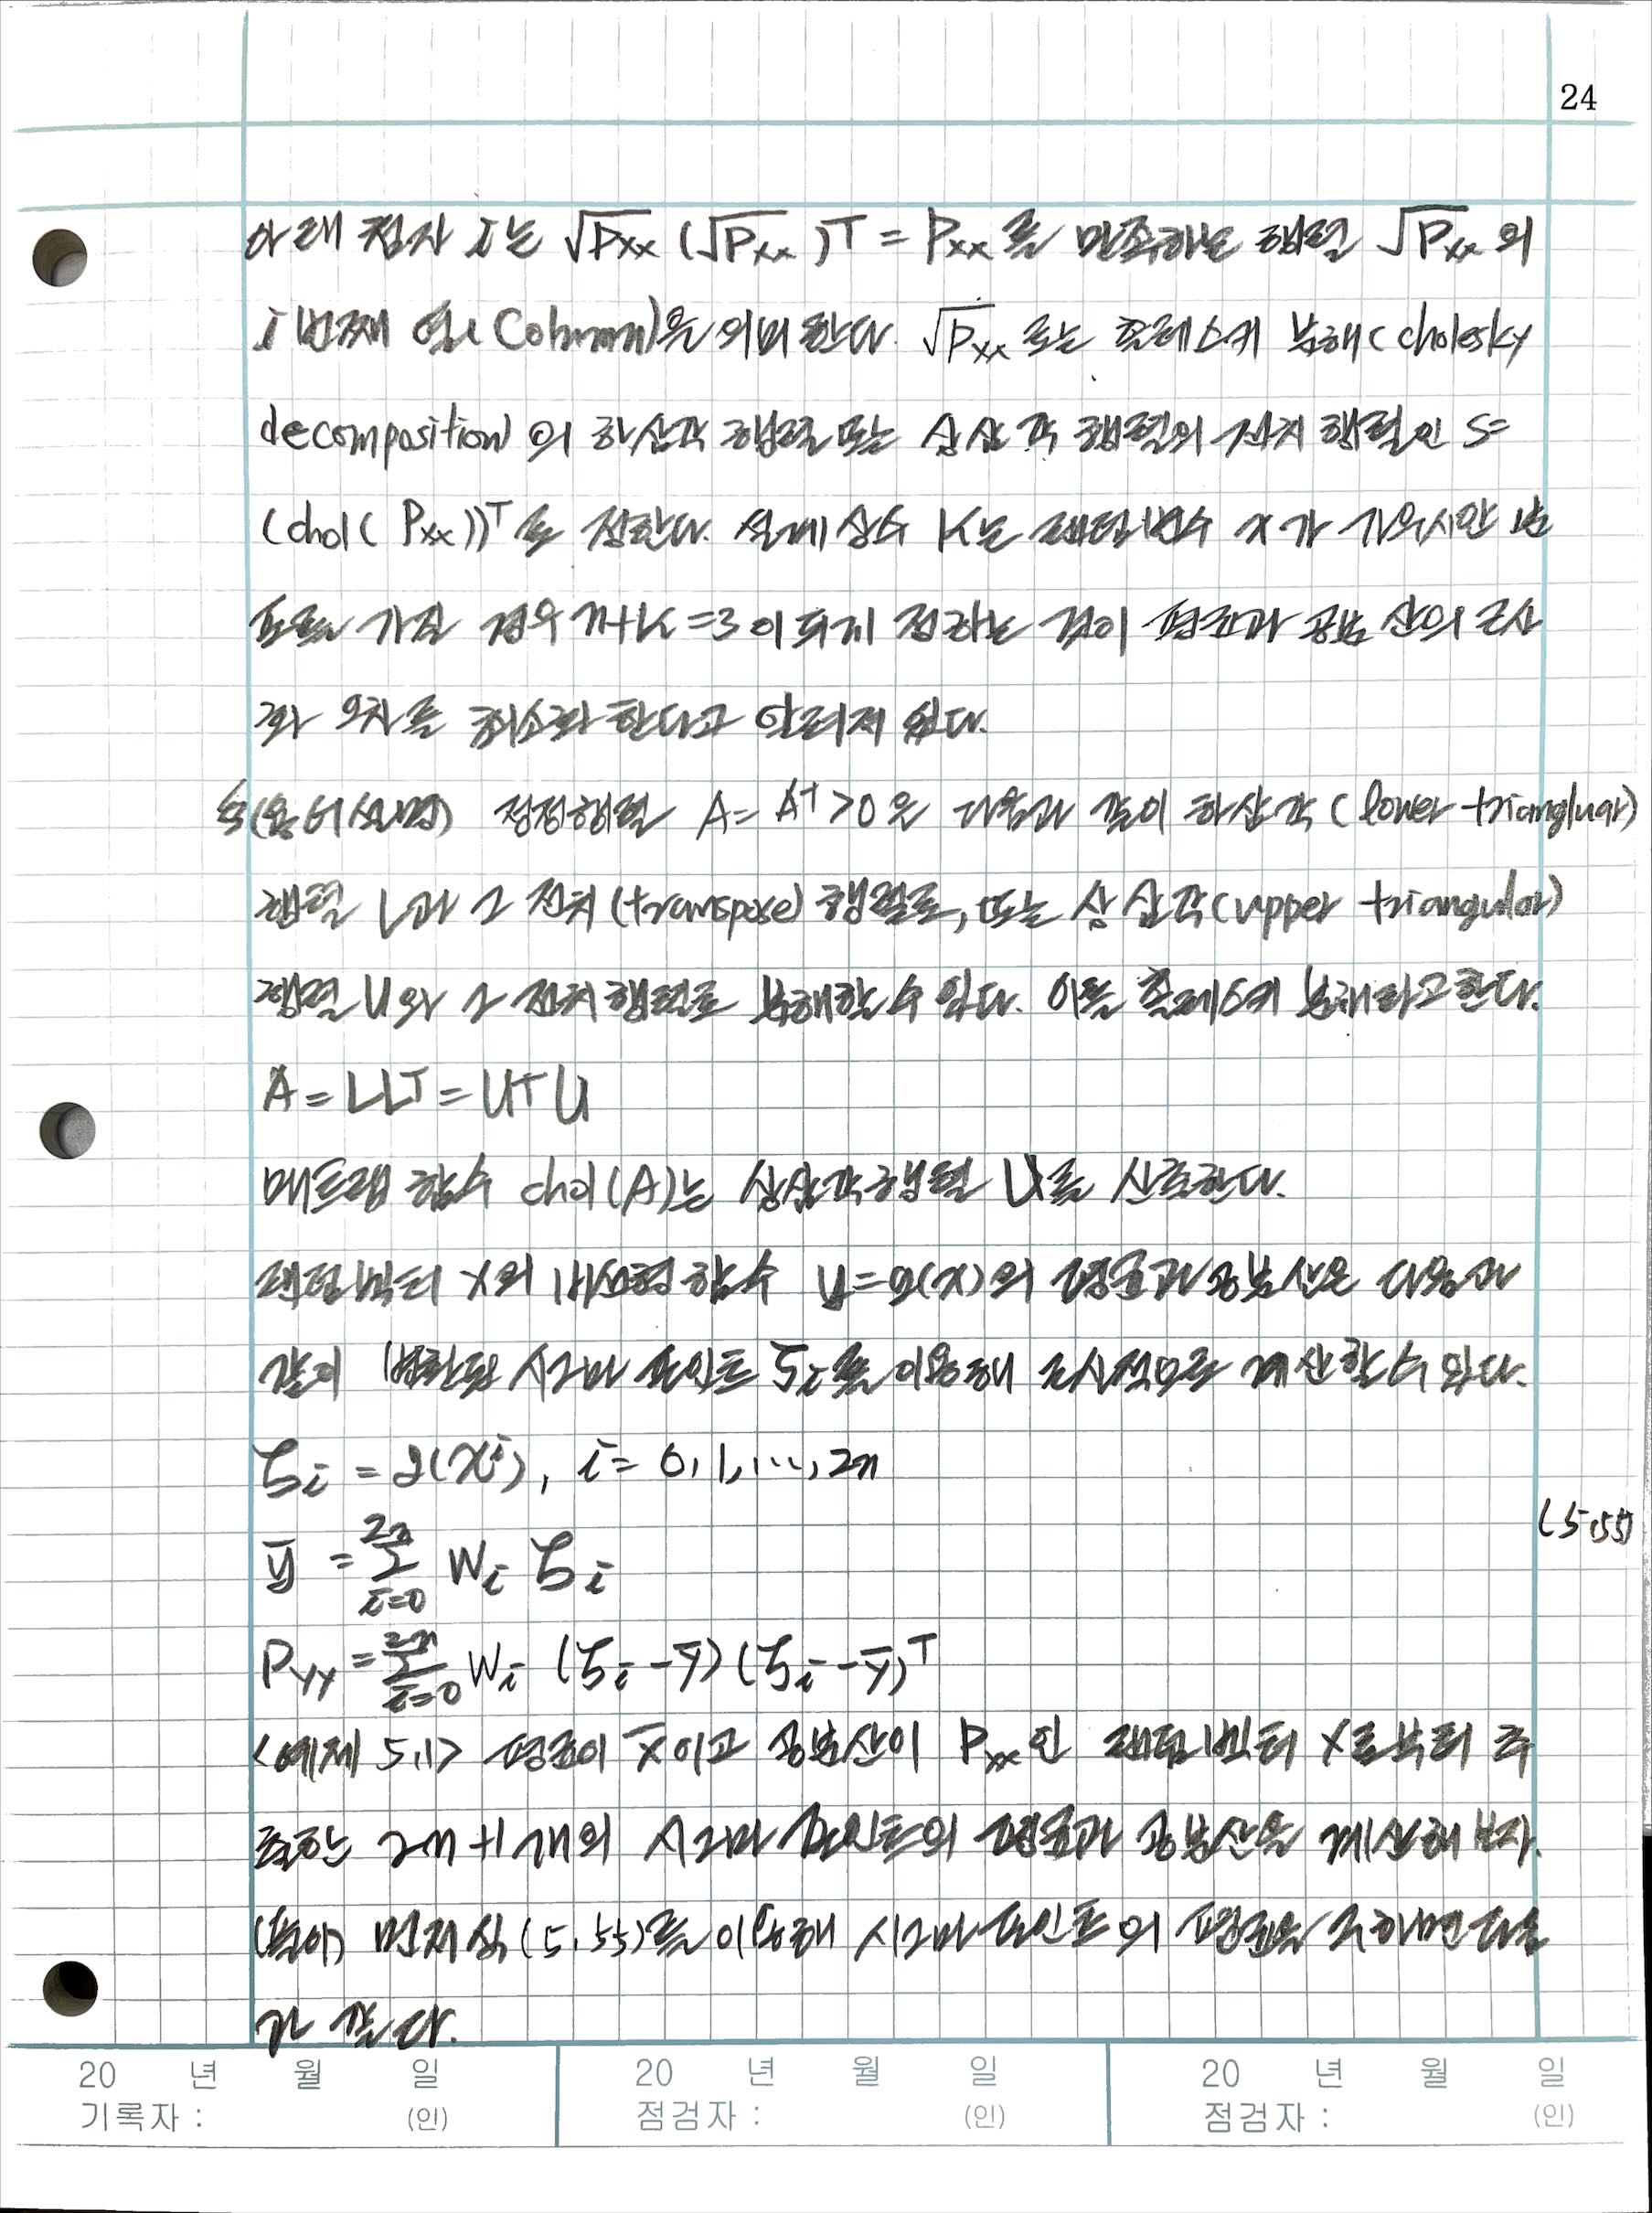 24
아래 첨자 i는 √Pxx (√Pxx)T = Pxx를 만족하는 행렬 √Pxx의
i번째 열(Column)을 의미한다. √Pxx로는 촐레스키 분해(cholesky
decomposition)의 하삼각 행렬 또는 상삼각 행렬의 전치 행렬인 S=
(chol(Pxx))T를 정한다. 설계상수 K는 랜덤변수 x가 가우시안 분
포를 가질 경우 n+K=3이 되게 정하는 것이 평균과 공분산의 근사
화 오차를 최소화한다고 알려져 있다.
(용어설명) 정정행렬 A=AT>0은 다음과 같이 하삼각(lower triangluar)
행렬 L과 그 전치(transpose) 행렬로, 또는 상삼각(upper triangular)
행렬 U와 그 전치 행렬로 분해할 수 있다. 이를 촐레스키 분해라고 한다.
A=LLT=UTU
매트랩 함수 chol(A)는 상삼각행렬 U를 산출한다.
랜덤벡터 X의 비선형함수 y=g(x)의 평균과 공분산은 다음과
같이 변환된 시그마 포인트 ζi를 이용해 근사적으로 계산할 수 있다.
ζi = g(χi), i=0,1,...,2n
(5.55)
ȳ = Σ i=0 2n Wi ζi
Pyy = Σ i=0 2n Wi (ζi-ȳ)(ζi-ȳ)T
<예제 5.1> 평균이 x̄이고 공분산이 Pxx인 랜덤벡터 X로부터 추
출한 2n+1개의 시그마 포인트의 평균과 공분산을 계산해 보자.
(풀이) 먼저 식(5.55)를 이용해 시그마 포인트의 평균을 구하면 다음
과 같다.
20 년 월 일 20 년 월 일 20 년 월 일
기록자 : (인) 점검자 : (인) 점검자 : (인)